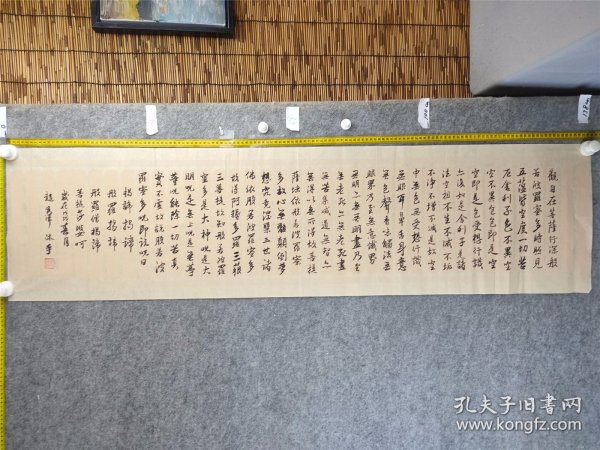 觀自在菩薩行深般
若波羅蜜多時照見
五蘊皆空度一切苦
厄舍利子色不異空
空不異色色即是空
空即是色受想行識
亦復如是舍利子是諸
法空相不生不滅不垢
不淨不增不減是故空
中無色無受想行識
無眼耳鼻舌身意
無色聲香味觸法無
眼界乃至無意識界
無無明亦無無明盡乃至
無老死亦無老死盡
無苦集滅道無智亦
無得以無所得故菩提
薩埵依般若波羅蜜
多故心無罣礙
顛倒夢
想究竟涅槃三世諸
佛依般若波羅蜜多
故得阿耨多羅三藐
三菩提故知般若波羅
蜜多是大神咒是大
明咒是無上咒是無等
等咒能除一切苦真
實不虛故說般若波
羅蜜多咒即說咒曰
揭諦揭諦
般羅揭諦
般羅僧揭諦
菩提莎婆呵
孔夫子旧书网
www.kongfz.com